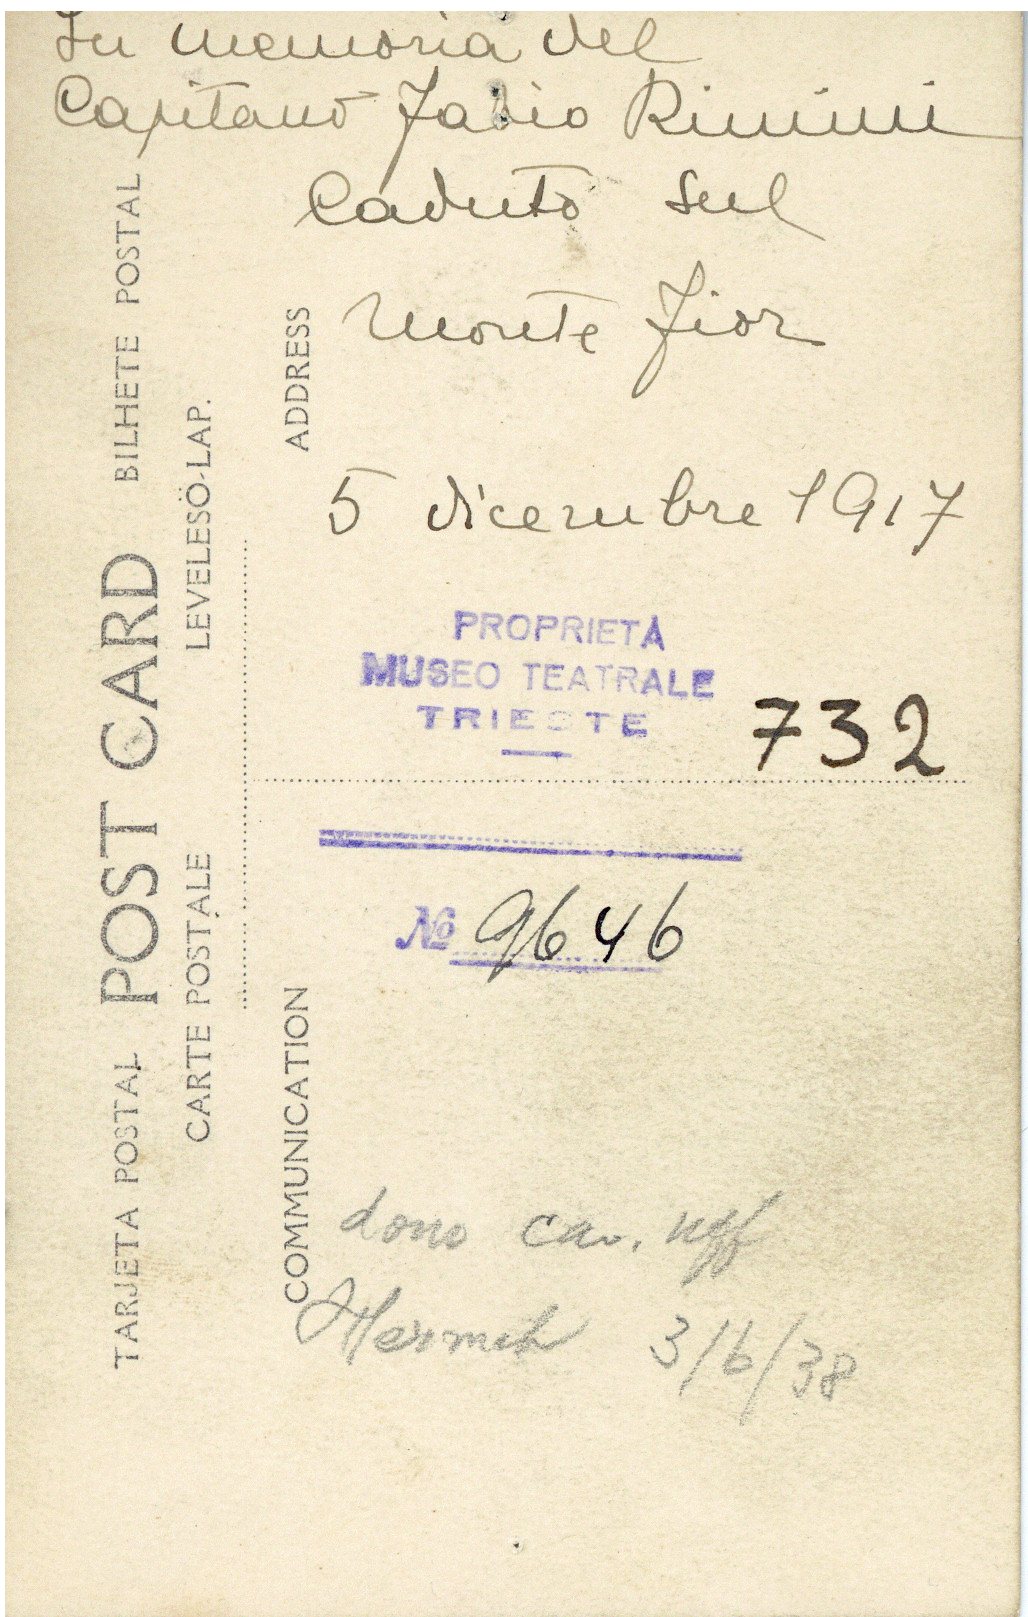 In memoria del
Capitano Fabio Rimini
Caduto sul
Monte Fior
5 dicembre 1917
PROPRIETÀ
MUSEO TEATRALE
TRIESTE
732
No 9646
dono cav. uff
3/6/38
TARJETA POSTAL POST CARD BILHETE POSTAL
CARTE POSTALE LEVELESÖ-LAP.
COMMUNICATION ADDRESS